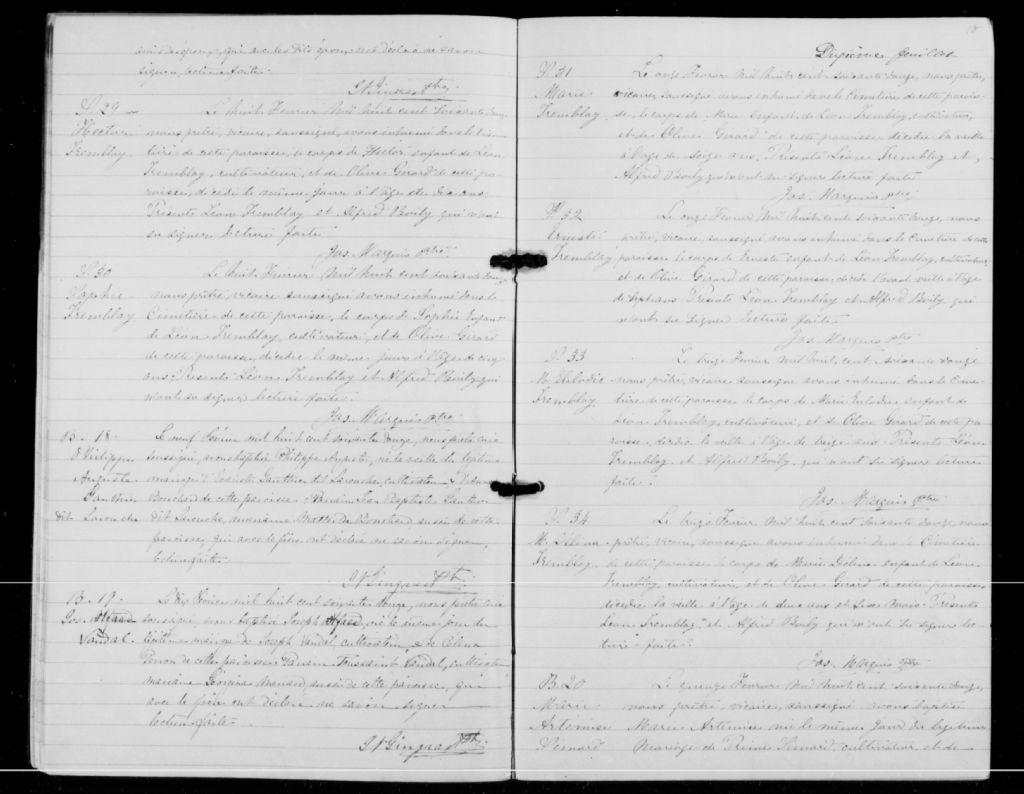 amis des époux, qui avec les dits époux ont déclaré ne savoir
signer, lecture faite.
J N Gingras Ptre
S. 29
Hector
Tremblay
Le huit Fevrier mil huit cent soixante douze
nous prêtre, vicaire, soussigné, avons inhumé dans le cime-
tière de cette paroisse, le corps de Hector enfant de Léon
Tremblay, cultivateur, et de Olive Gerard de cette pa-
roisse, décédé le même jour à l'âge de dix ans.
Présents Léon Tremblay et Alfred Boily qui n'ont
su signer lecture faite.
Jos. Marquis ptre
S. 30
Sophie
Tremblay
Le huit Fevrier, mil huit cent soixante douze
nous prêtre, vicaire soussigné avons inhumé dans le
Cimetière de cette paroisse, le corps de Sophie Enfant
de Léon Tremblay, cultivateur, et de Olive Gerard
de cette paroisse, décédée le même jour à l'âge de cinq
ans; Présents Léon Tremblay et Alfred Boily qui
n'ont su signer lecture faite.
Jos. Marquis ptre
B. 18.
Philippe
Auguste
Gauthier
dit Larouche
Le neuf Février mil huit cent soixante douze, nous prêtre curé
soussigné, avons baptisé Philippe Auguste, né la veille du légitime
mariage Gauthier dit Larouche, cultivateur &
Bouchard de cette paroisse. Parrain Jean Baptiste Gauthier
dit Larouche, marraine Bouchard aussi de cette
paroisse, qui avec le père ont déclaré ne savoir signer,
lecture faite.
J N Gingras Ptre
B. 19.
Jos. Alfred
Vandal.
Le dix Février mil huit cent soixante douze, nous prêtre curé
soussigné, avons baptisé Joseph Alfred, né le du
légitime mariage de Joseph Vandal, cultivateur & de Célina
de cette paroisse. Parrain Toussaint Vandal, cultivateur
marraine aussi de cette paroisse, qui
avec le père ont déclaré ne savoir signer
lecture faite.
J N Gingras Ptre
18
Dixième feuillet
S. 31
Marie
Tremblay
Le onze Fevrier mil huit cent soixante douze, nous prêtre,
vicaire, soussigné avons inhumé dans le Cimetière de cette parois-
se, le corps de Marie Enfant de Léon Tremblay, cultivateur,
et de Olive Gerard de cette paroisse décédée la veille
à l'âge de seize ans; Présents Léon Tremblay et,
Alfred Boily qui n'ont su signer lecture faite
Jos. Marquis ptre
S. 32
Ernest
Tremblay
Le onze Fevrier, mil huit cent soixante douze, nous
prêtre, vicaire, soussigné, avons inhumé dans le Cimetière de cette
paroisse le corps de Ernest enfant de Léon Tremblay, cultivateur
et de Olive Gerard de cette paroisse, décédé l'avant veille à l'âge
de sept ans. Présents Léon Tremblay et Alfred Boily qui
n'ont su signer lecture faite.
Jos. Marquis ptre
S. 33
M. Elodie
Tremblay
Le treize Fevrier mil huit cent soixante douze
nous prêtre, vicaire, soussigné avons inhumé dans le Cime-
tière de cette paroisse le corps de Marie enfant de
Léon Tremblay, cultivateur, et de Olive Gerard de cette pa-
roisse, décédée la veille à l'âge de treize ans Présents Léon
Tremblay et Alfred Boily, qui n'ont su signer lecture
faite.
Jos. Marquis ptre
S. 34
M. Délina
Tremblay
Le treize Fevrier, mil huit cent soixante douze, nous
prêtre, vicaire, soussigné avons inhumé dans le Cimetière
de cette paroisse le corps de Marie Délina enfant de Léon
Tremblay, cultivateur, et de Olive Gerard de cette paroisse,
décédée la veille à l'âge de deux ans et mois. Présents
Léon Tremblay et Alfred Boily qui n'ont su signer lec-
ture faite.
Jos. Marquis ptre
B. 20
Marie
Artémise
Simard
Le quinze Fevrier mil huit cent soixante douze,
nous prêtre, vicaire, soussigné avons baptisé
Marie Artémise née le même jour du légitime
Mariage de Simard, cultivateur et de